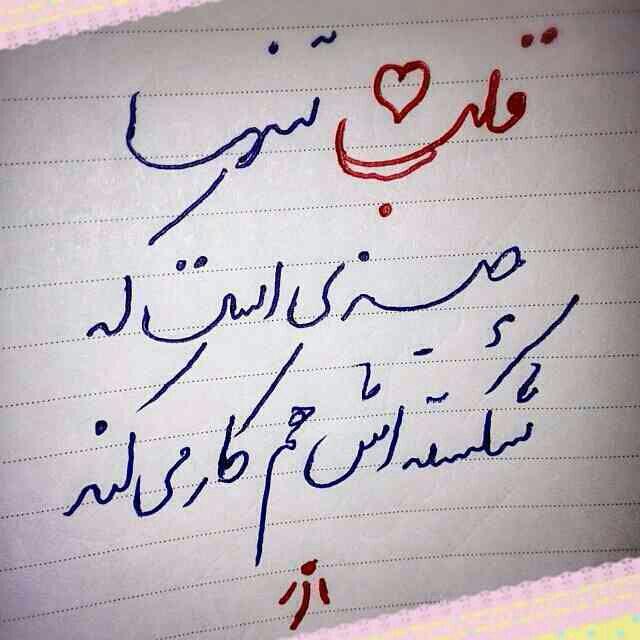 قلب تنها
چیزی است که
شکسته اش هم کار می کند